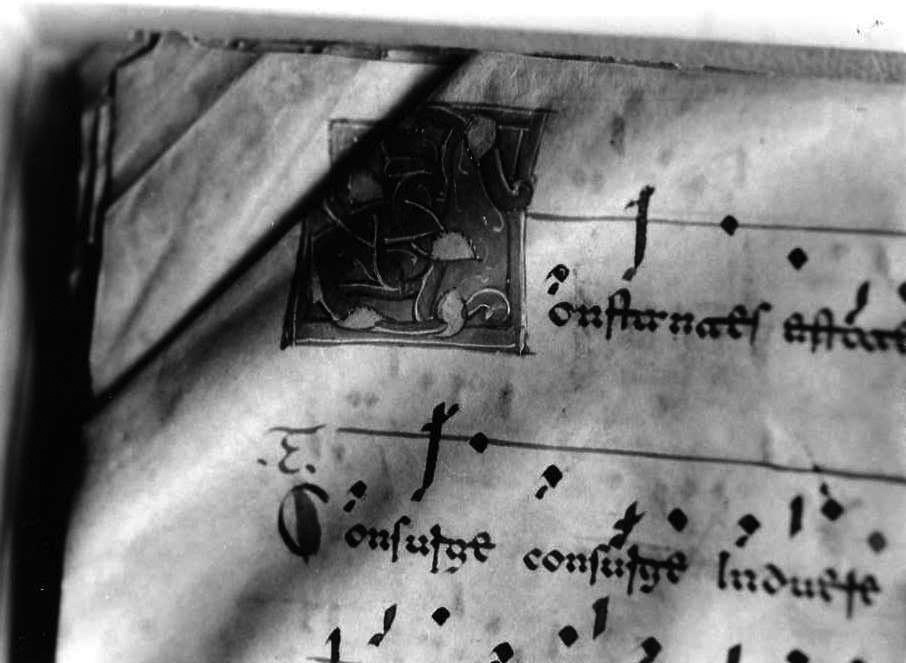 onstantes estote
Consurge consurge induere